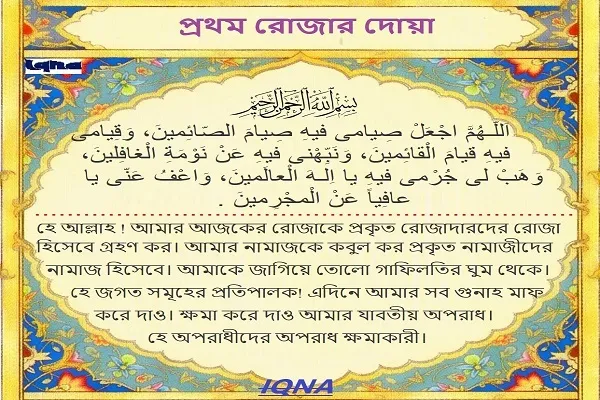 প্রথম রোজার দোয়া
iqna
بِسْمِ اللَّهِ الرَّحْمَنِ الرَّحِيمِ
اللَّـهُمَّ اجْعَلْ صِيامى فيهِ صِيامَ الصّائِمينَ، وَقِيامى
فيهِ قيامَ الْقائِمينَ، وَنَبِّهْنى فيهِ عَنْ نَوْمَةِ الْغافِلينَ،
وَهَبْ لى جُرْمى فيهِ يا اِلـهَ الْعالَمينَ، وَاعْفُ عَنّى يا
عافِياً عَنْ الْمجْرِمينَ .
হে আল্লাহ ! আমার আজকের রোজাকে প্রকৃত রোজাদারদের রোজা
হিসেবে গ্রহণ কর। আমার নামাজকে কবুল কর প্রকৃত নামাজীদের
নামাজ হিসেবে। আমাকে জাগিয়ে তোলো গাফিলতির ঘুম থেকে।
হে জগত সমূহের প্রতিপালক! এদিনে আমার সব গুনাহ মাফ
করে দাও। ক্ষমা করে দাও আমার যাবতীয় অপরাধ।
হে অপরাধীদের অপরাধ ক্ষমাকারী।
IQNA